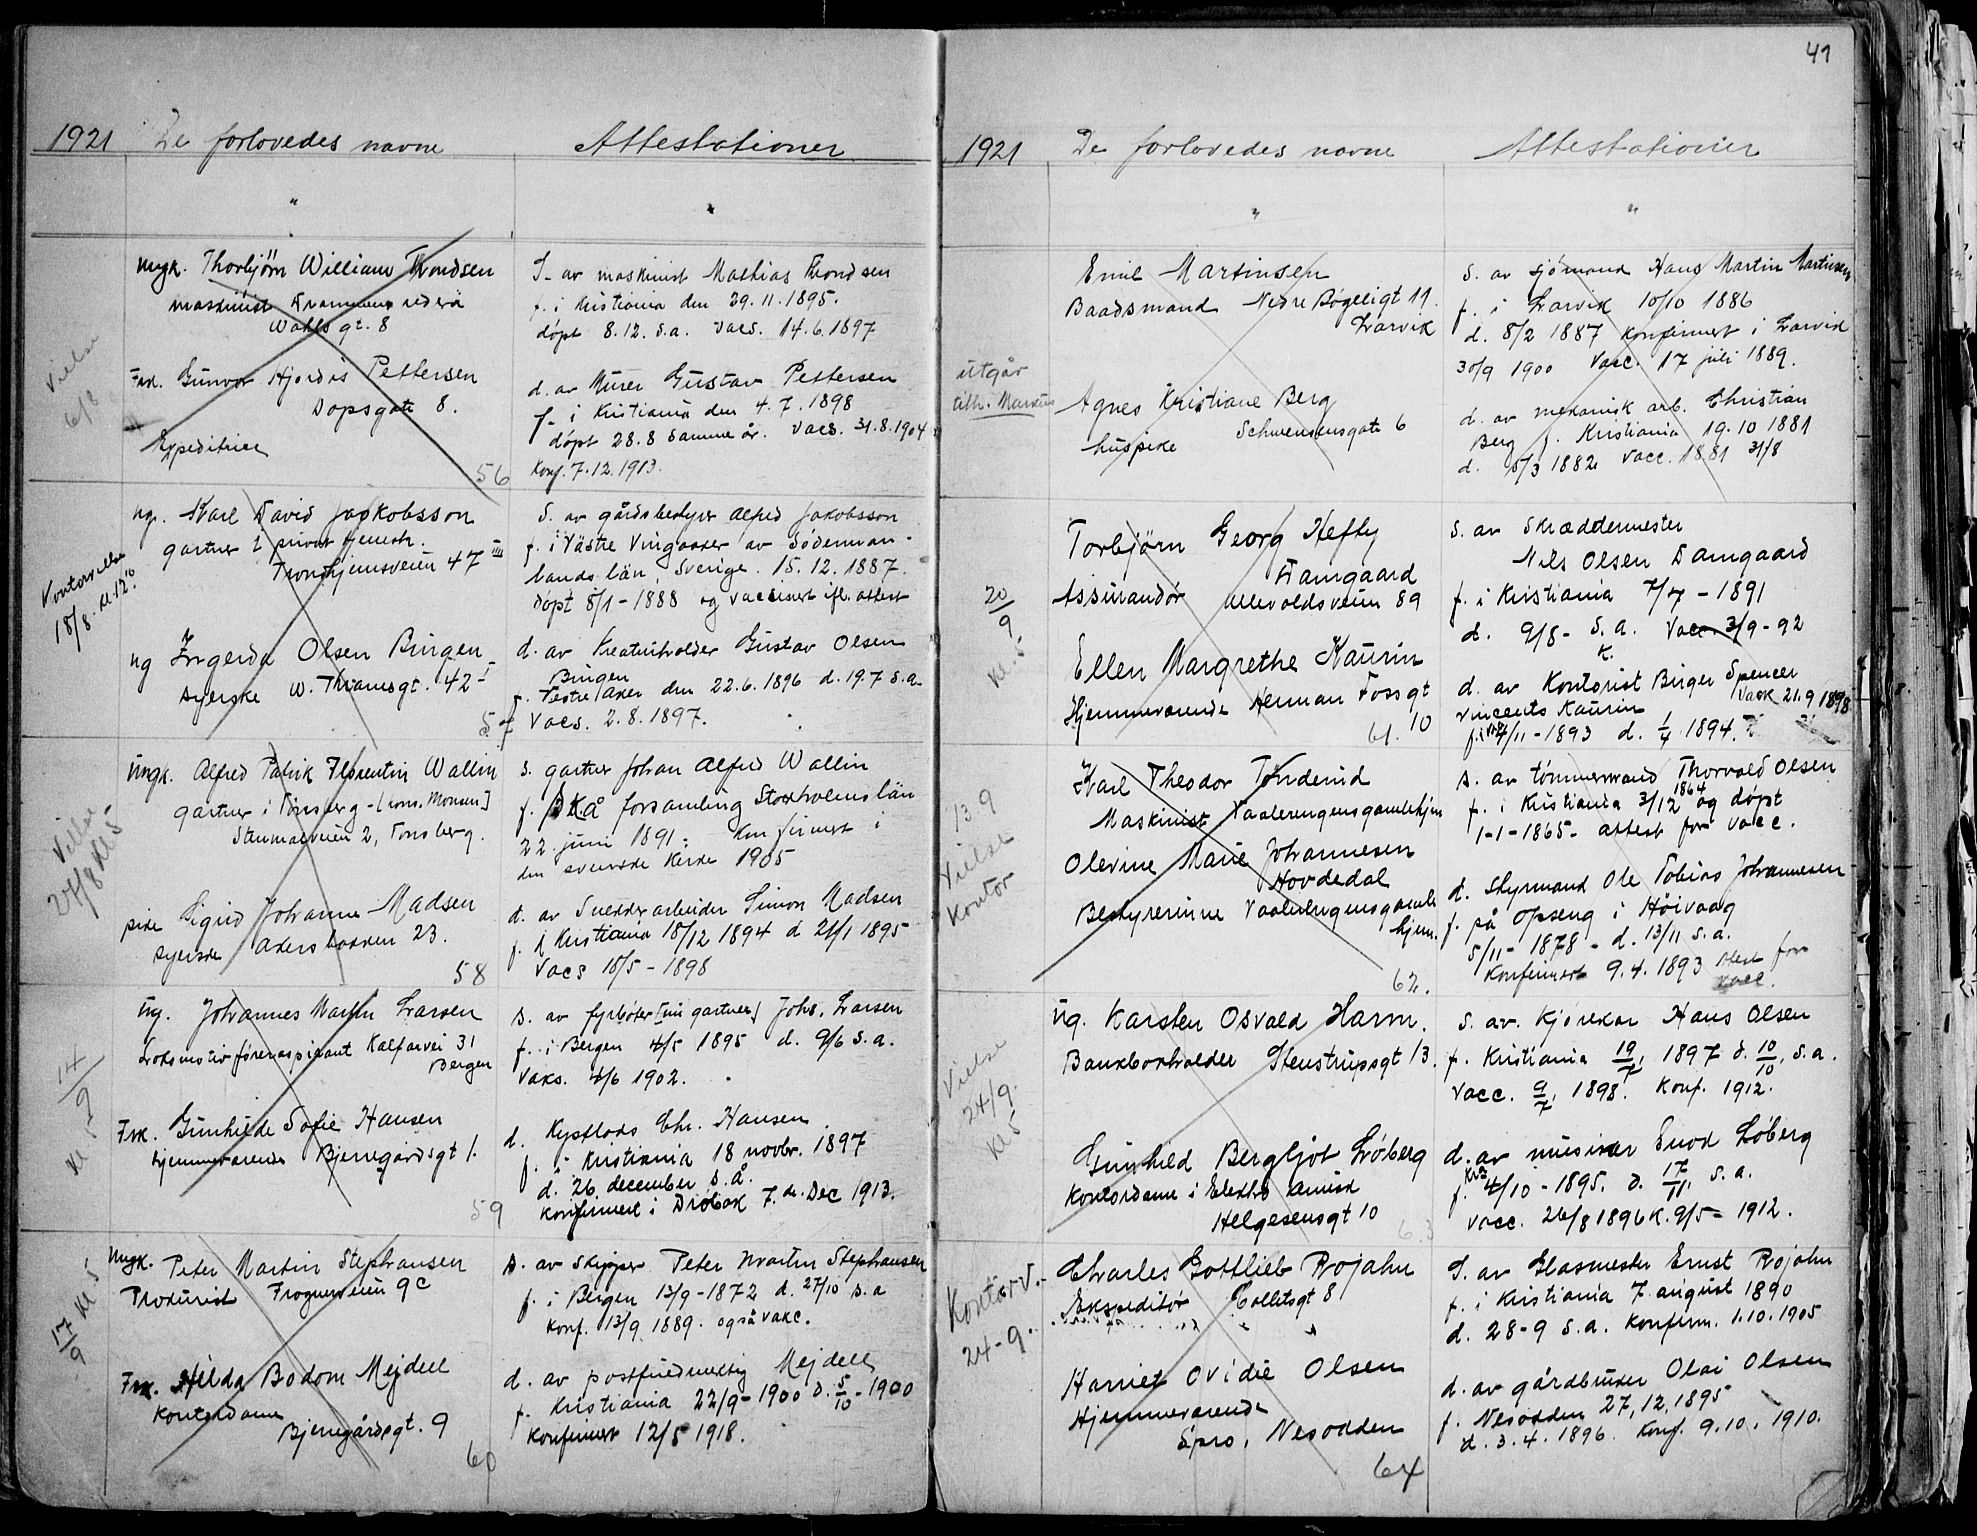 1921 De forlovedes navne Attestationer
" "
Ungk. Thorbjörn William Trondsen
maskinist Drammens rederi
Wahls gt. 8
Vielse
6/8
Frk. Gunvor Hjördis Pettersen
Dopsgate 8.
Expeditrise
56
S. av maskinist Mathias Trondsen
f. i Kristiania den 29.11.1895.
döpt 8.12. s.a. vacs. 14.6.1897
d. av Murer Gustav Pettersen
f. i Kristiania den 4.7.1898
döpt 28.8 samme år. vacs. 31.8.1904
Konf. 7.12.1913.
ug. Karl David Jackobsson
gartner i privat tjeneste.
Trondhjemsveien 47 III
Kontorvielse
18/8. kl. 12.
ug Ingerda Olsen Bingen
syerske W. Thranesgt. 42 I
57
S. av gårdsbestyrer Alfred Jakobsson
f. i Västre Vingaaker av Söderman-
lands län, Sverige. 15.12.1887.
döpt 8/1-1888 og vaccinert ifl. attest
d. av Kreaturholder Gustav Olsen
Bingen
f. Vestre Aker den 22.6.1896 d. 19.7 s.a.
Vacs. 2.8.1897.
Ungk. Alfred Patrik Florentin Wallin
gartner i Tönsberg - [kons. Monsen]
Stenmalveien 2, Tönsberg.
Vielse
27/8 kl 5
pike Sigrid Johanne Madsen
syerske Akersbakken 23.
58
s. gartner Johan Alfred Wallin
f. Skå forsamling Stockholms län
22 juni 1891. Konfirmert i
den svenske kirke 1905
d. av Snekkerarbeider Simon Madsen
f. i Kristiania 18/12 1894 d 21/1 1895
Vacs 18/5-1898
Ug. Johannes Martin Larsen
Lokomotivföreraspirant Kalfarvei 31
Bergen
14/9
kl 5
Frk. Gunhilde Sofie Hansen
hjemmeværende Bjerregårdsgt 1.
59
s. av fyrböter [nu gartner] Johs. Larsen
f. i Bergen 4/5 1895 d. 9/6 s.a.
Vaks. 4/6 1902.
d. Kystlods Chr. Hansen
f. i Kristiania 18 novbr. 1897
d. 26 december s.å.
konfirmert i Dröbak 7. de. Dec 1913.
Ungk. Peter Martin Stephansen
Prokurist Frognerveien 9c
17/9 kl 5
Frk. Hilda Bodom Mejdell
Kontordame
Bjerregårdsgt. 9
60
s. av Skipper Peter Martin Stephansen
f. i Bergen 13/9-1872 d. 27/10 s.a
Konf. 13/9 1889. også vakc.
d. av postfuldmektig Mejdell
f. Kristiania 22/9-1900 d. 5/10-1900
Konfirmert 12/5 1918.
41
1921 De forlovedes navne Attestationer
" "
Emil Martinsen
Baadsmand Nedre Bögeligt 11.
Larvik
utgår
tilh. Markus
Agnes Kristiane Berg
huspike Schwensensgate 6
S. av sjömand Hans Martin Martinsen
f. i Larvik 10/10 1886
d. 8/2 1887 Konfirmert i Larvik
30/9 1900 Vacc. 17 juli 1889.
d. av mekanisk arb. Christian
Berg f. Kristiania 19.10 1881
d. 5/3 1882 Vacc. 1881 31/8
Torbjörn Georg Hefty
Damgaard
Assurandör Ullevoldsveien 89
20/9
kl. 5
Ellen Margrethe Kaurin
Hjemmeværende Herman Fossgt
10
61.
S. av Skræddermester
Nils Olsen Damgaard
f. i Kristiania 7/7-1891
d. 9/8- s.a. Vacc. 3/9-92
d. av Kontorist Birger Spencer
Vincents Kaurin Vack 21.9 1898
4/11-1893 d. 1/4 1894.
Karl Theodor Tönderud
Maskinist Vaalerengensgamlehjem
13.9
Vielse
Kontor
Olevine Marie Johannesen
Hovdedal
Bestyrerinne Vaalerengensgamle
hjem.
62.
s. av tömmermand Thorvald Olsen
1864
f. i Kristiania 3/12 og döpt
1-1-1865- attest for vacc.
d. Styrmand Ole Tobias Johannesen
f. på Opseng i Höivaag
5/11-1878- d. 13/11 s.a.
Konfirmert 9.4.1893 Attest for
vacc.
Ug. Karsten Osvald Harm.
Bankbokholder Stenstrupsgt 13.
Vielse
24/9.
kl 5
Gunhild Bergljot Löberg
Kontordame i Elektro kemisk
Helgesensgt 10
63
S. av. Kjörekar Hans Olsen
f. Kristiania 19/7, 1897 d. 10/10. s.a.
Vacc. 9/7. 1898. Konf. 1912.
d. av musiker Enok Löberg
f. Kra 4/10-1895. d. 17/11. s.a.
vacc. 26/8 1896 K. 9/5- 1912.
Charles Gottlieb Rojahn
Ekspeditör Colletsgt 8
Kontorv.
24-9.
Harriet Ovidie Olsen
Hjemmeværende
Spro, Nesodden
64
S. av Glasmester Ernst Rojahn
f. i Kristiania 7. august 1890
d. 28-9 s.a. Konfirm. 1.10.1905
d. av gårdbruker Olai Olsen
f. Nesodden 27,12,1895
d. 3.4.1896. Konf. 9.10.1910.